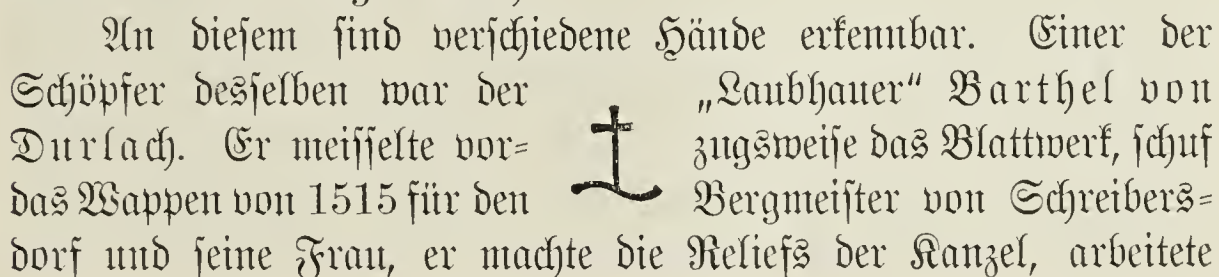 An diesem sind verschiedene Hände erkennbar. Einer der
Schöpfer desselben war der „Laubhauer“ Barthel von
Durlach. Er meisselte vor= zugsweise das Blattwerk, schuf
das Wappen von 1515 für den Bergmeister von Schreibers=
dorf und seine Frau, er machte die Reliefs der Kanzel, arbeitete